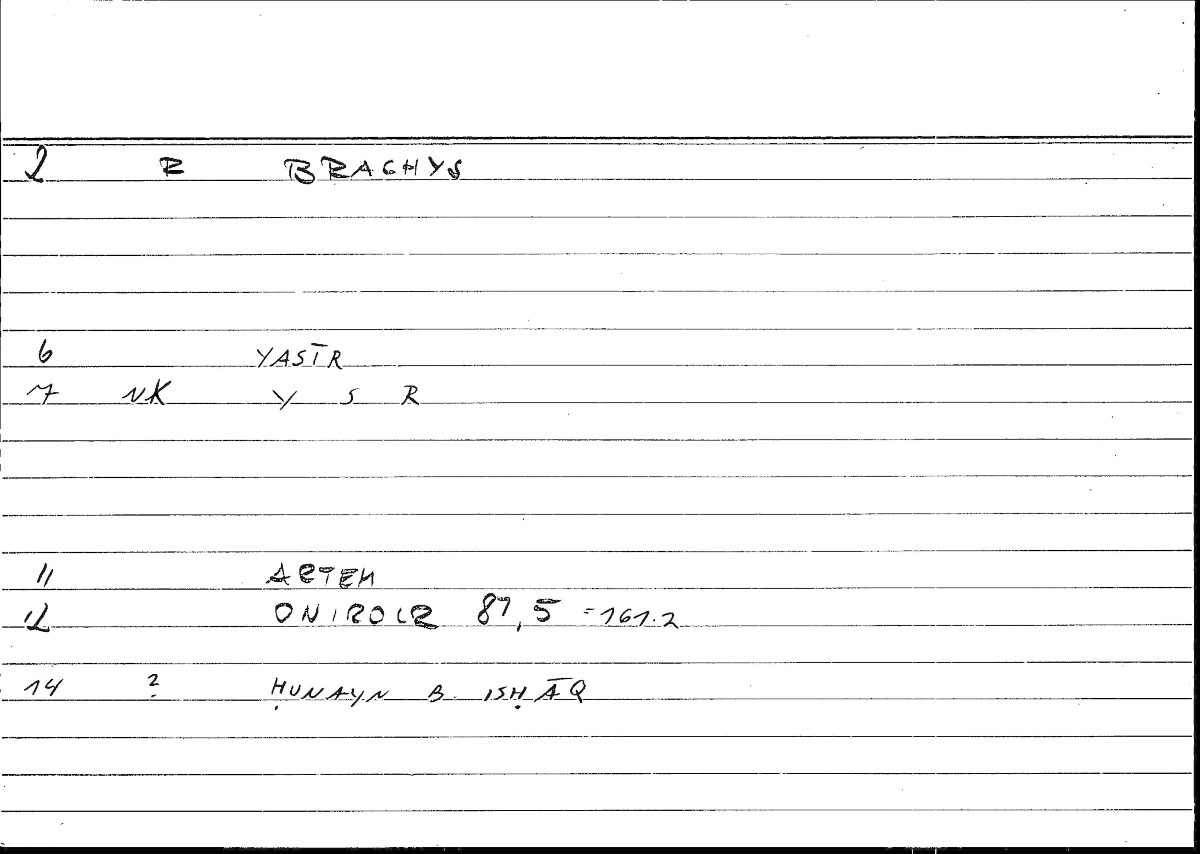 2 R BRACHYS
6 YASĪR
7 NK Y S R
11 ARTEM
12 ONIROCR 87,5 =161.2
14 ? ḤUNAYN B. ISḤĀQ